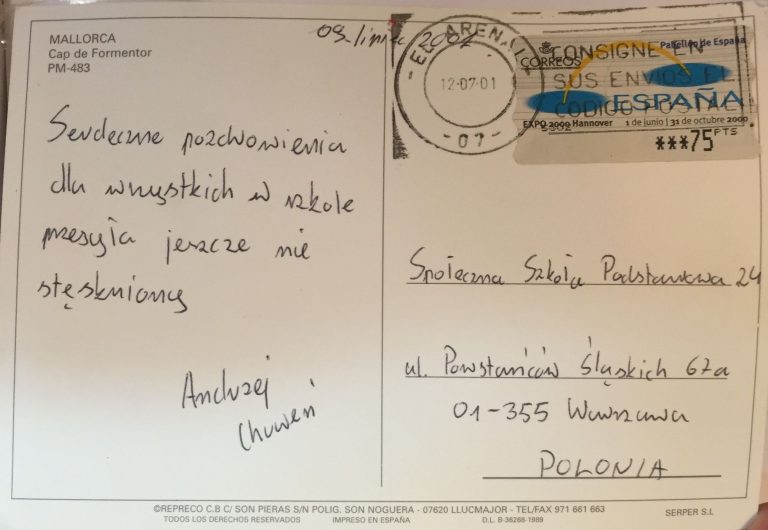 MALLORCA
Cap de Formentor
PM-483
09 lipiec 2001
Serdeczne pozdrowienia
dla wszystkich w szkole
przesyła jeszcze nie
stęskniony
Andrzej
EL ARENAL
12-07-01
-07-
CORREOS
Pabellón de España
CONSIGNE EN
SUS ENVIOS EL
CODIGO POSTAL
ESPAÑA
EXPO 2000 Hannover 1 de junio | 31 de octubre 2000
***75 PTS
Społeczna Szkoła Podstawowa 24
ul. Powstańców Śląskich 67a
01-355 Warszawa
POLONIA
©REPRECO C.B C/ SON PIERAS S/N POLIG. SON NOGUERA - 07620 LLUCMAJOR - TEL/FAX 971 661 663
TODOS LOS DERECHOS RESERVADOS IMPRESO EN ESPAÑA D.L. B-36268-1989 SERPER S.L